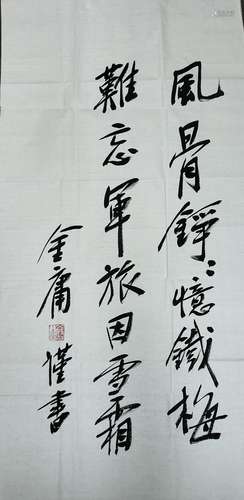 風骨錚〻憶鐵梅
難忘軍旅因雪霜
金庸 谨書